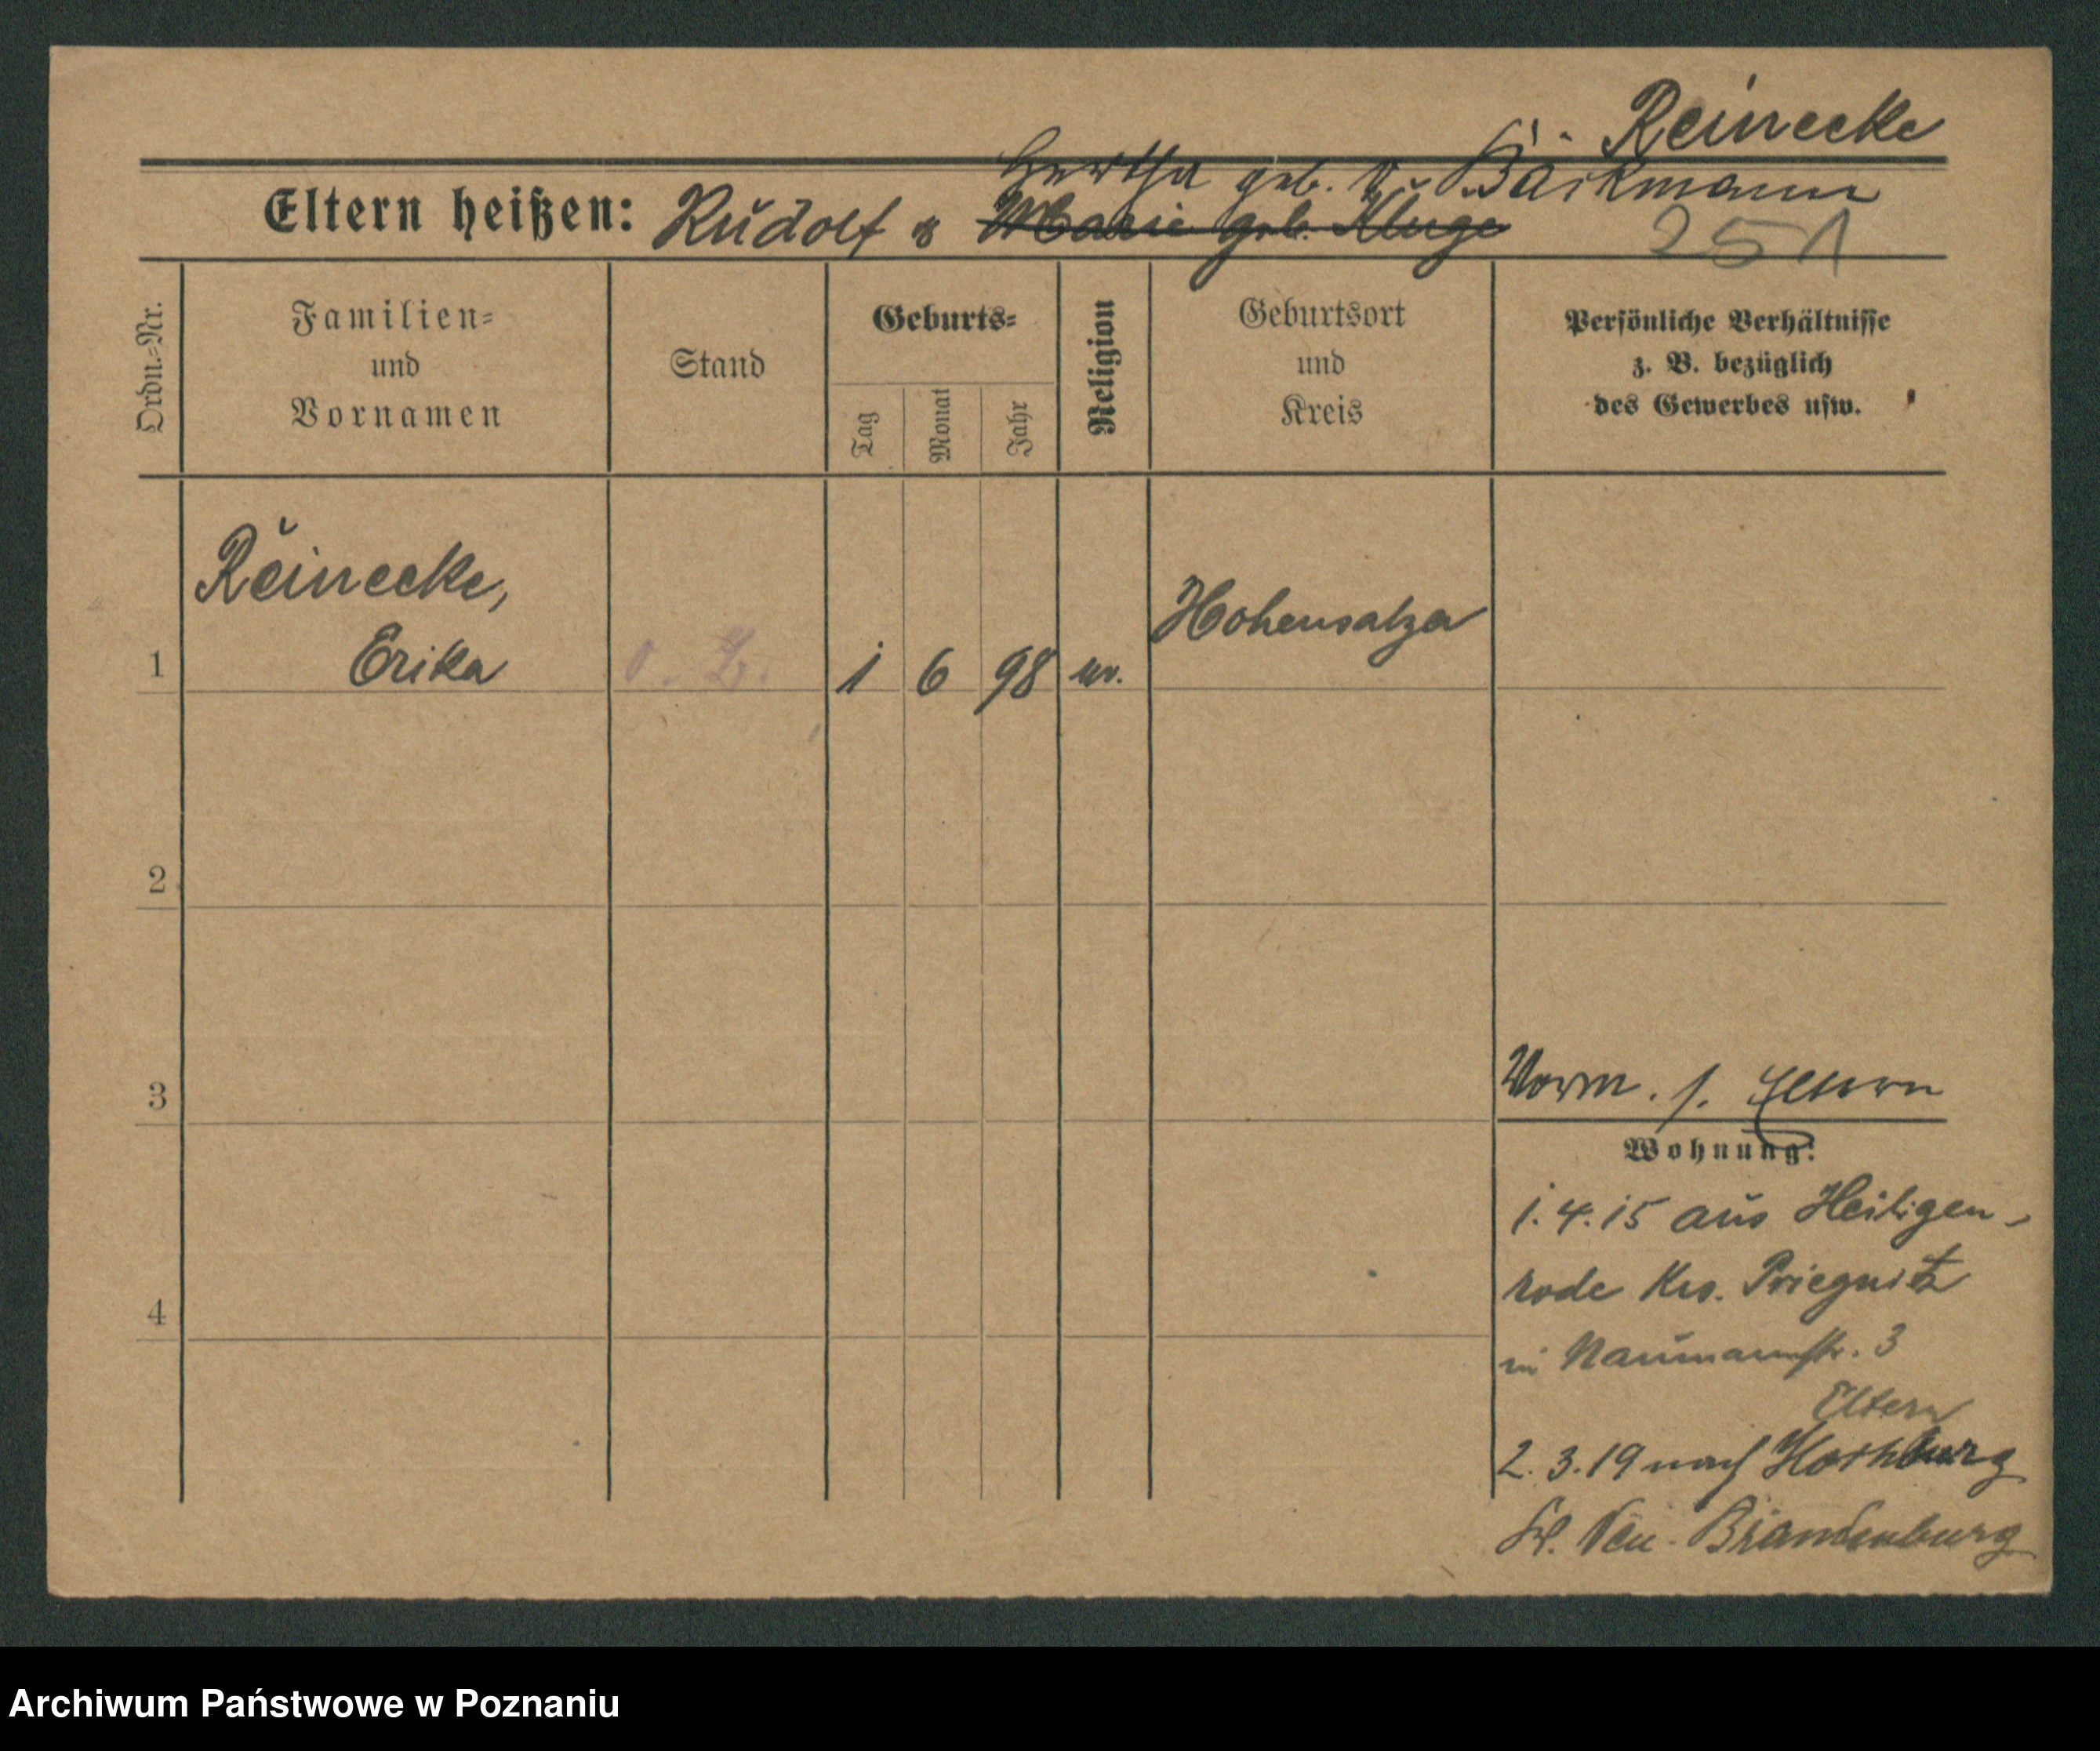 Reinecke
Hertha geb. v. Bäckmann
Eltern heißen: Rudolf & Marie geb. Kluge
251
Ordn.=Nr.
Familien=
und
Vornamen
Stand
Geburts=
Tag
Monat
Jahr
Religion
Geburtsort
und
Kreis
Persönliche Verhältnisse
z. B. bezüglich
des Gewerbes usw.
Reinecke,
Erika
1
1 6 98 ev.
Hohensalza
2
3
Vorm. s. Eltern
Wohnung:
1.4.15 aus Heiligen-
rode Krs. Priegnitz
in Naumannstr. 3
Eltern
2.3.19 nach
Neu-Brandenburg
4
Archiwum Państwowe w Poznaniu